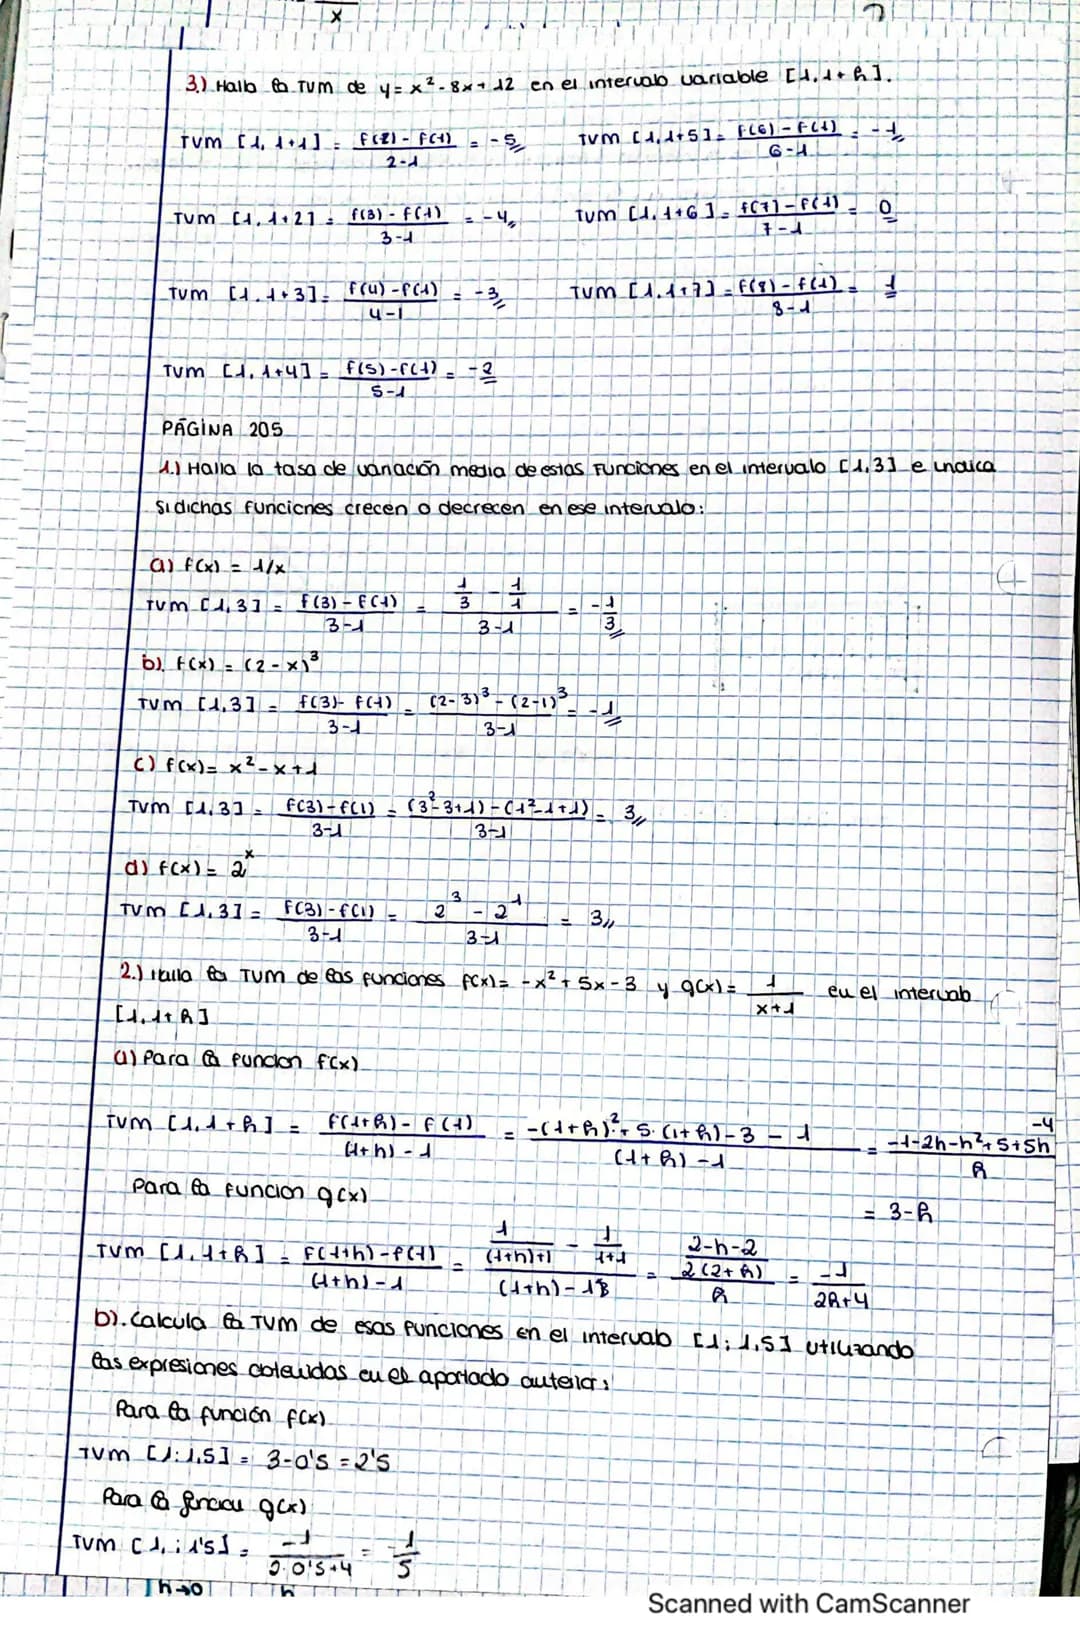 x
3.) Halla la TVM de y = x² - 8x + 12 en el intervalo variable [1, 1 + h].
TVM [1, 1+1] = f(2) - f(1) / 2-1 = -5
TVM [1, 1+5] = f(6) - f(1) / 6-1 = -1
TVM [1, 1+2] = f(3) - f(1) / 3-1 = -4
TVM [1, 1+6] = f(7) - f(1) / 7-1 = 0
TVM [1, 1+3] = f(4) - f(1) / 4-1 = -3
TVM [1, 1+7] = f(8) - f(1) / 8-1 = 1
TVM [1, 1+4] = f(5) - f(1) / 5-1 = -2
PÁGINA 205
1.) Halla la tasa de variación media de estas funciones en el intervalo [1,3] e indica
si dichas funciones crecen o decrecen en ese intervalo:
a) f(x) = 1/x
TVM [1,3] = f(3) - f(1) / 3-1 = 1/3 - 1/1 / 3-1 = -1/3
b). f(x) = (2-x)³
TVM [1,3] = f(3) - f(1) / 3-1 = (2-3)³ - (2-1)³ / 3-1 = -1
c) f(x) = x² - x + 1
TVM [1,3] = f(3) - f(1) / 3-1 = (3²-3+1) - (1²-1+1) / 3-1 = 3
d) f(x) = 2ˣ
TVM [1,3] = f(3) - f(1) / 3-1 = 2³ - 2¹ / 3-1 = 3
2.) Halla la TVM de las funciones f(x) = -x² + 5x - 3 y g(x) = 1 / x+1 en el intervalo
[1, 1+h]
a) Para la funcion f(x)
TVM [1, 1+h] = f(1+h) - f(1) / (1+h) - 1 = -(1+h)² + 5·(1+h) - 3 - 1 / (1+h) - 1 = -1-2h-h²+5+5h -4 / h
= 3-h
Para la funcion g(x)
TVM [1, 1+h] = f(1+h) - f(1) / (1+h) - 1 = 1/(1+h)+1 - 1/1+1 / (1+h) - 1 = 2-h-2 / 2(2+h) / h = -1 / 2h+4
b). Calcula la TVM de esas funciones en el intervalo [1; 1,5] utilizando
las expresiones obtenidas en el apartado anterior:
Para la función f(x)
TVM [1; 1,5] = 3-0's = 2's
Para la funcion g(x)
TVM [1, ; 1's] = -1 / 2·0's+4 = -1/5
h→0 h
Scanned with CamScanner